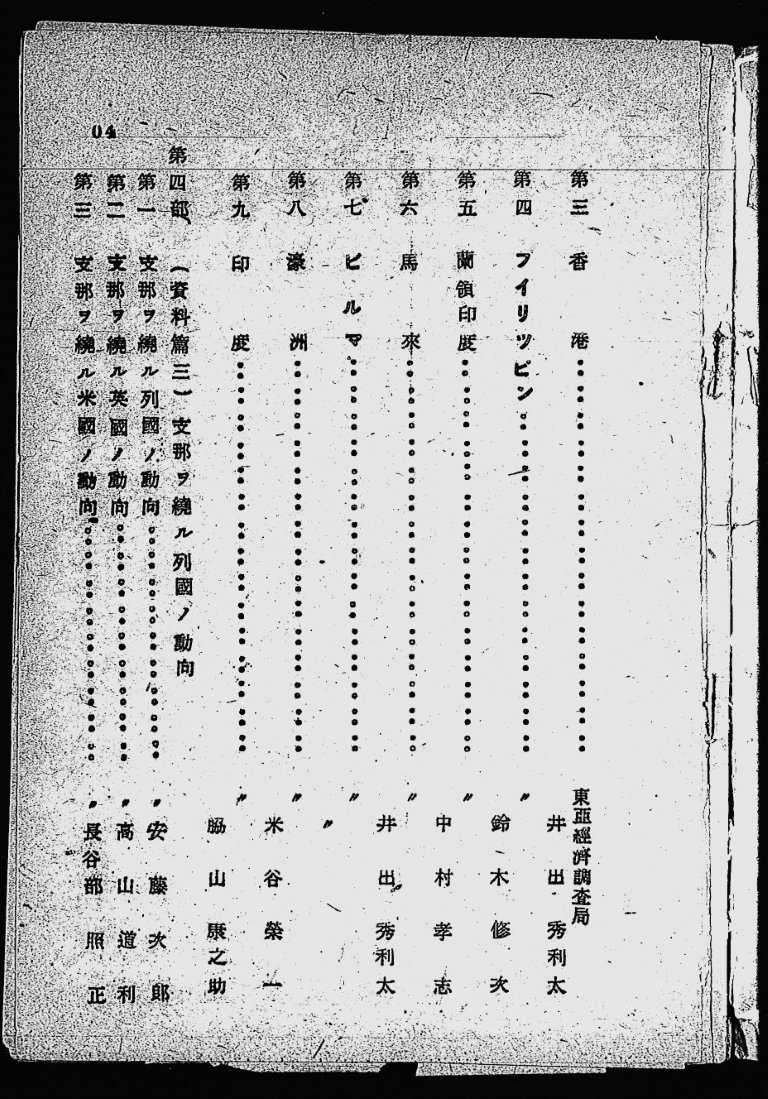 04
第三 香港………… 東亞經濟調査局
井出秀利太
第四 フイリツピン………… 〃
鈴木修次
第五 蘭領印度………… 〃
中村孝志
第六 馬來………… 〃
井出秀利太
第七 ビルマ………… 〃
〃
第八 濠洲………… 〃
米谷榮一
第九 印度………… 〃
脇山康之助
第四部、(資料篇三)支那ヲ繞ル列國ノ動向
第一 支那ヲ繞ル列國ノ動向………… 〃 安藤次郎
第二 支那ヲ繞ル英國ノ動向………… 〃 高山道利
第三 支那ヲ繞ル米國ノ動向………… 〃 長谷部照正